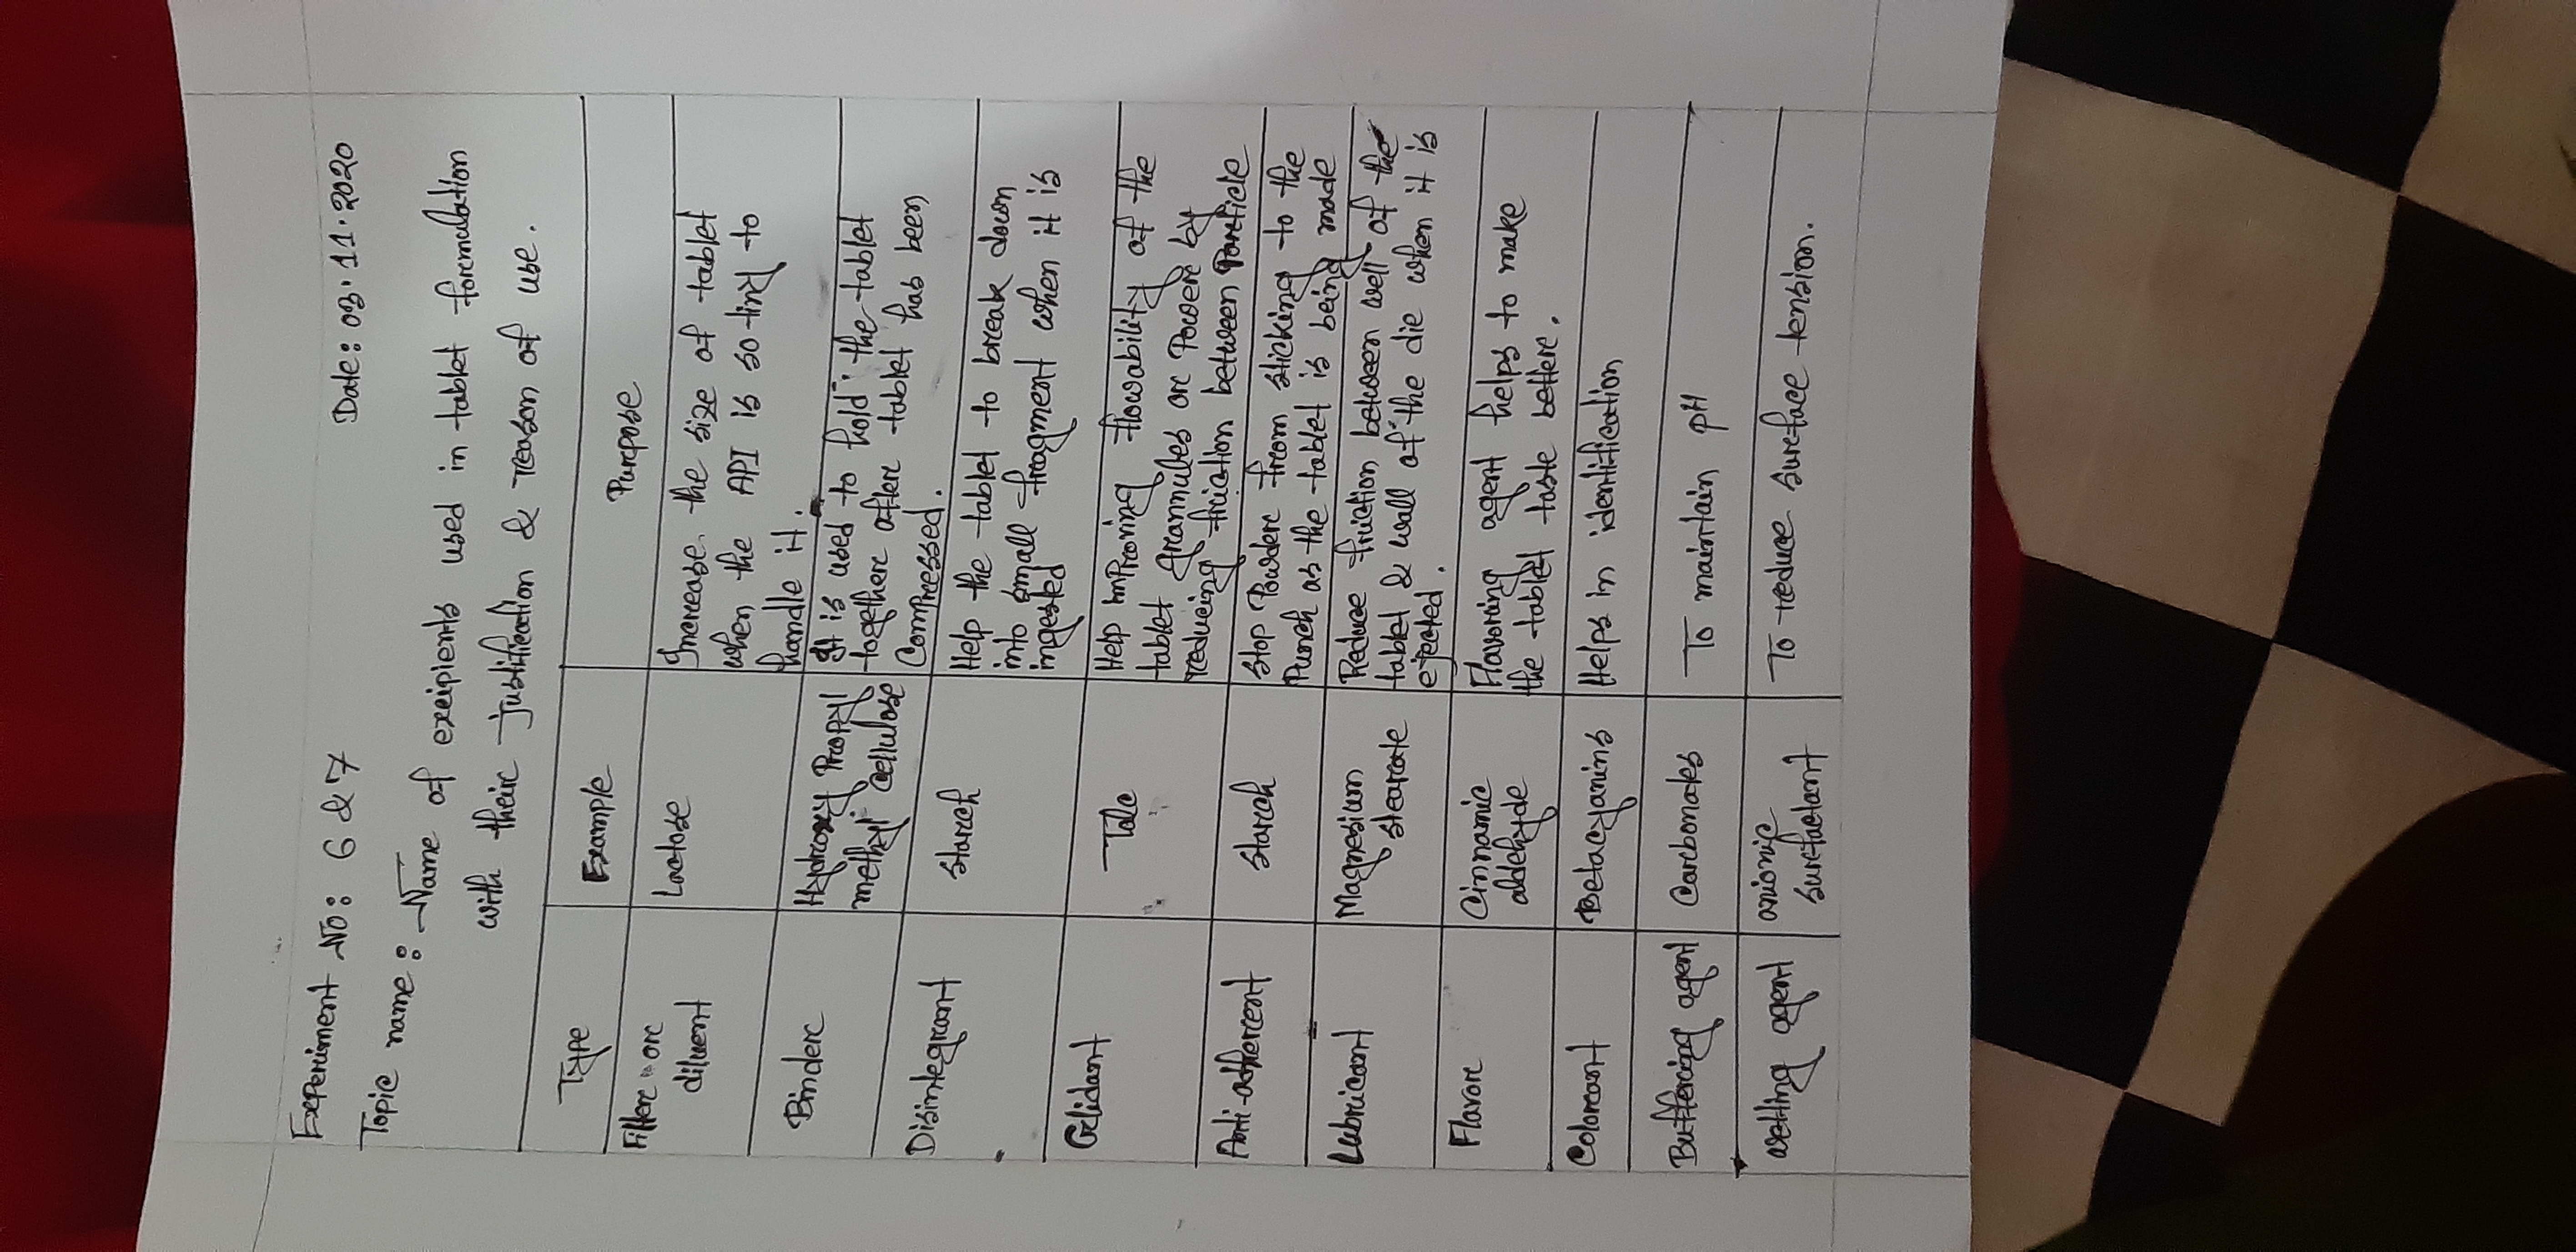 Experiment No: 6 & 7
Date: 03.11.2020
Topic name: Name of excipients used in tablet formulation
with their justification & reason of use.
Type
Example
Purpose
Filler or
diluent
Lactose
Increase the size of tablet
when the API is so tiny to
handle it.
Binder
Hydroxy Propyl
methyl cellulose
It is used to hold the tablet
together after tablet has been
Compressed.
Disintegrant
Starch
Help the tablet to break down
into small fragment when it is
ingested
Glidant
Talc
Help improving flowability of the
tablet grannules or Power by
reducing friction between Particle
Anti-adherent
Starch
Stop Powder from sticking to the
Punch as the tablet is being made
Lubricant
Magnesium
stearate
Reduce friction between well of the
tablet & wall of the die when it is
ejected.
Flavor
Cinnamic
aldehyde
Flavoring agent helps to make
the tablet taste better.
Colorant
Betacyanins
Helps in identification
Buffering agent
Carbonates
To maintain pH
wetting agent
anionic
surfactant
To reduce surface tension.